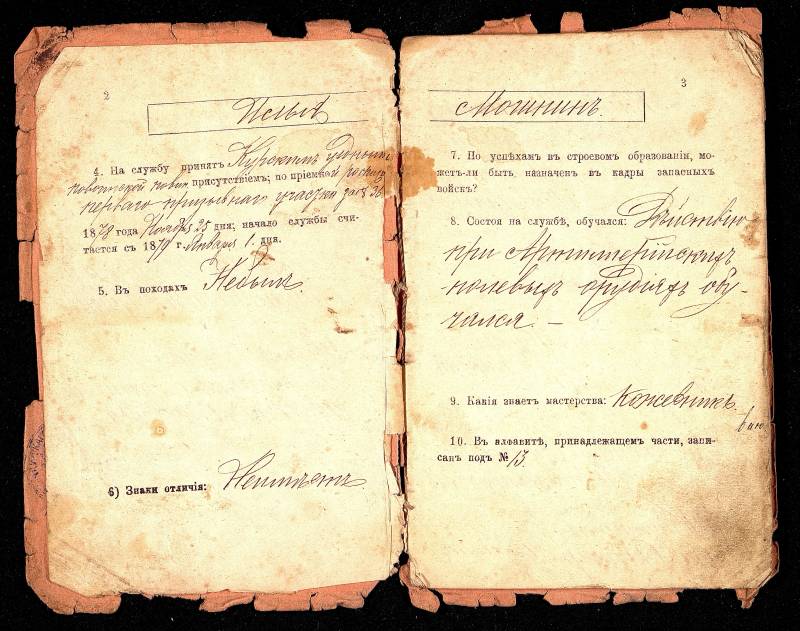 2
Илья
4. На службу принятъ Курскимъ уѣзднымъ
по воинской повин. присутствіемъ; по пріемной росписи
перваго призывнаго участка за № 36
1878 года Ноября 25 дня; начало службы счи-
тается съ 1879 г. Января 1. дня.
5. Въ походахъ Небылъ.
6) Знаки отличія: Неимѣетъ
3
Мошнинъ.
7. По успѣхамъ въ строевомъ образованіи, мо-
жетъ-ли быть назначенъ въ кадры запасныхъ
войскъ?
8. Состоя на службѣ, обучался: Дѣйствію
при Артиллерійскихъ
полевыхъ орудіяхъ обу-
чался. —
9. Какія знаетъ мастерства: Кожевникъ.
10. Въ алфавитѣ, принадлежащемъ части, запи-
санъ подъ № 13.